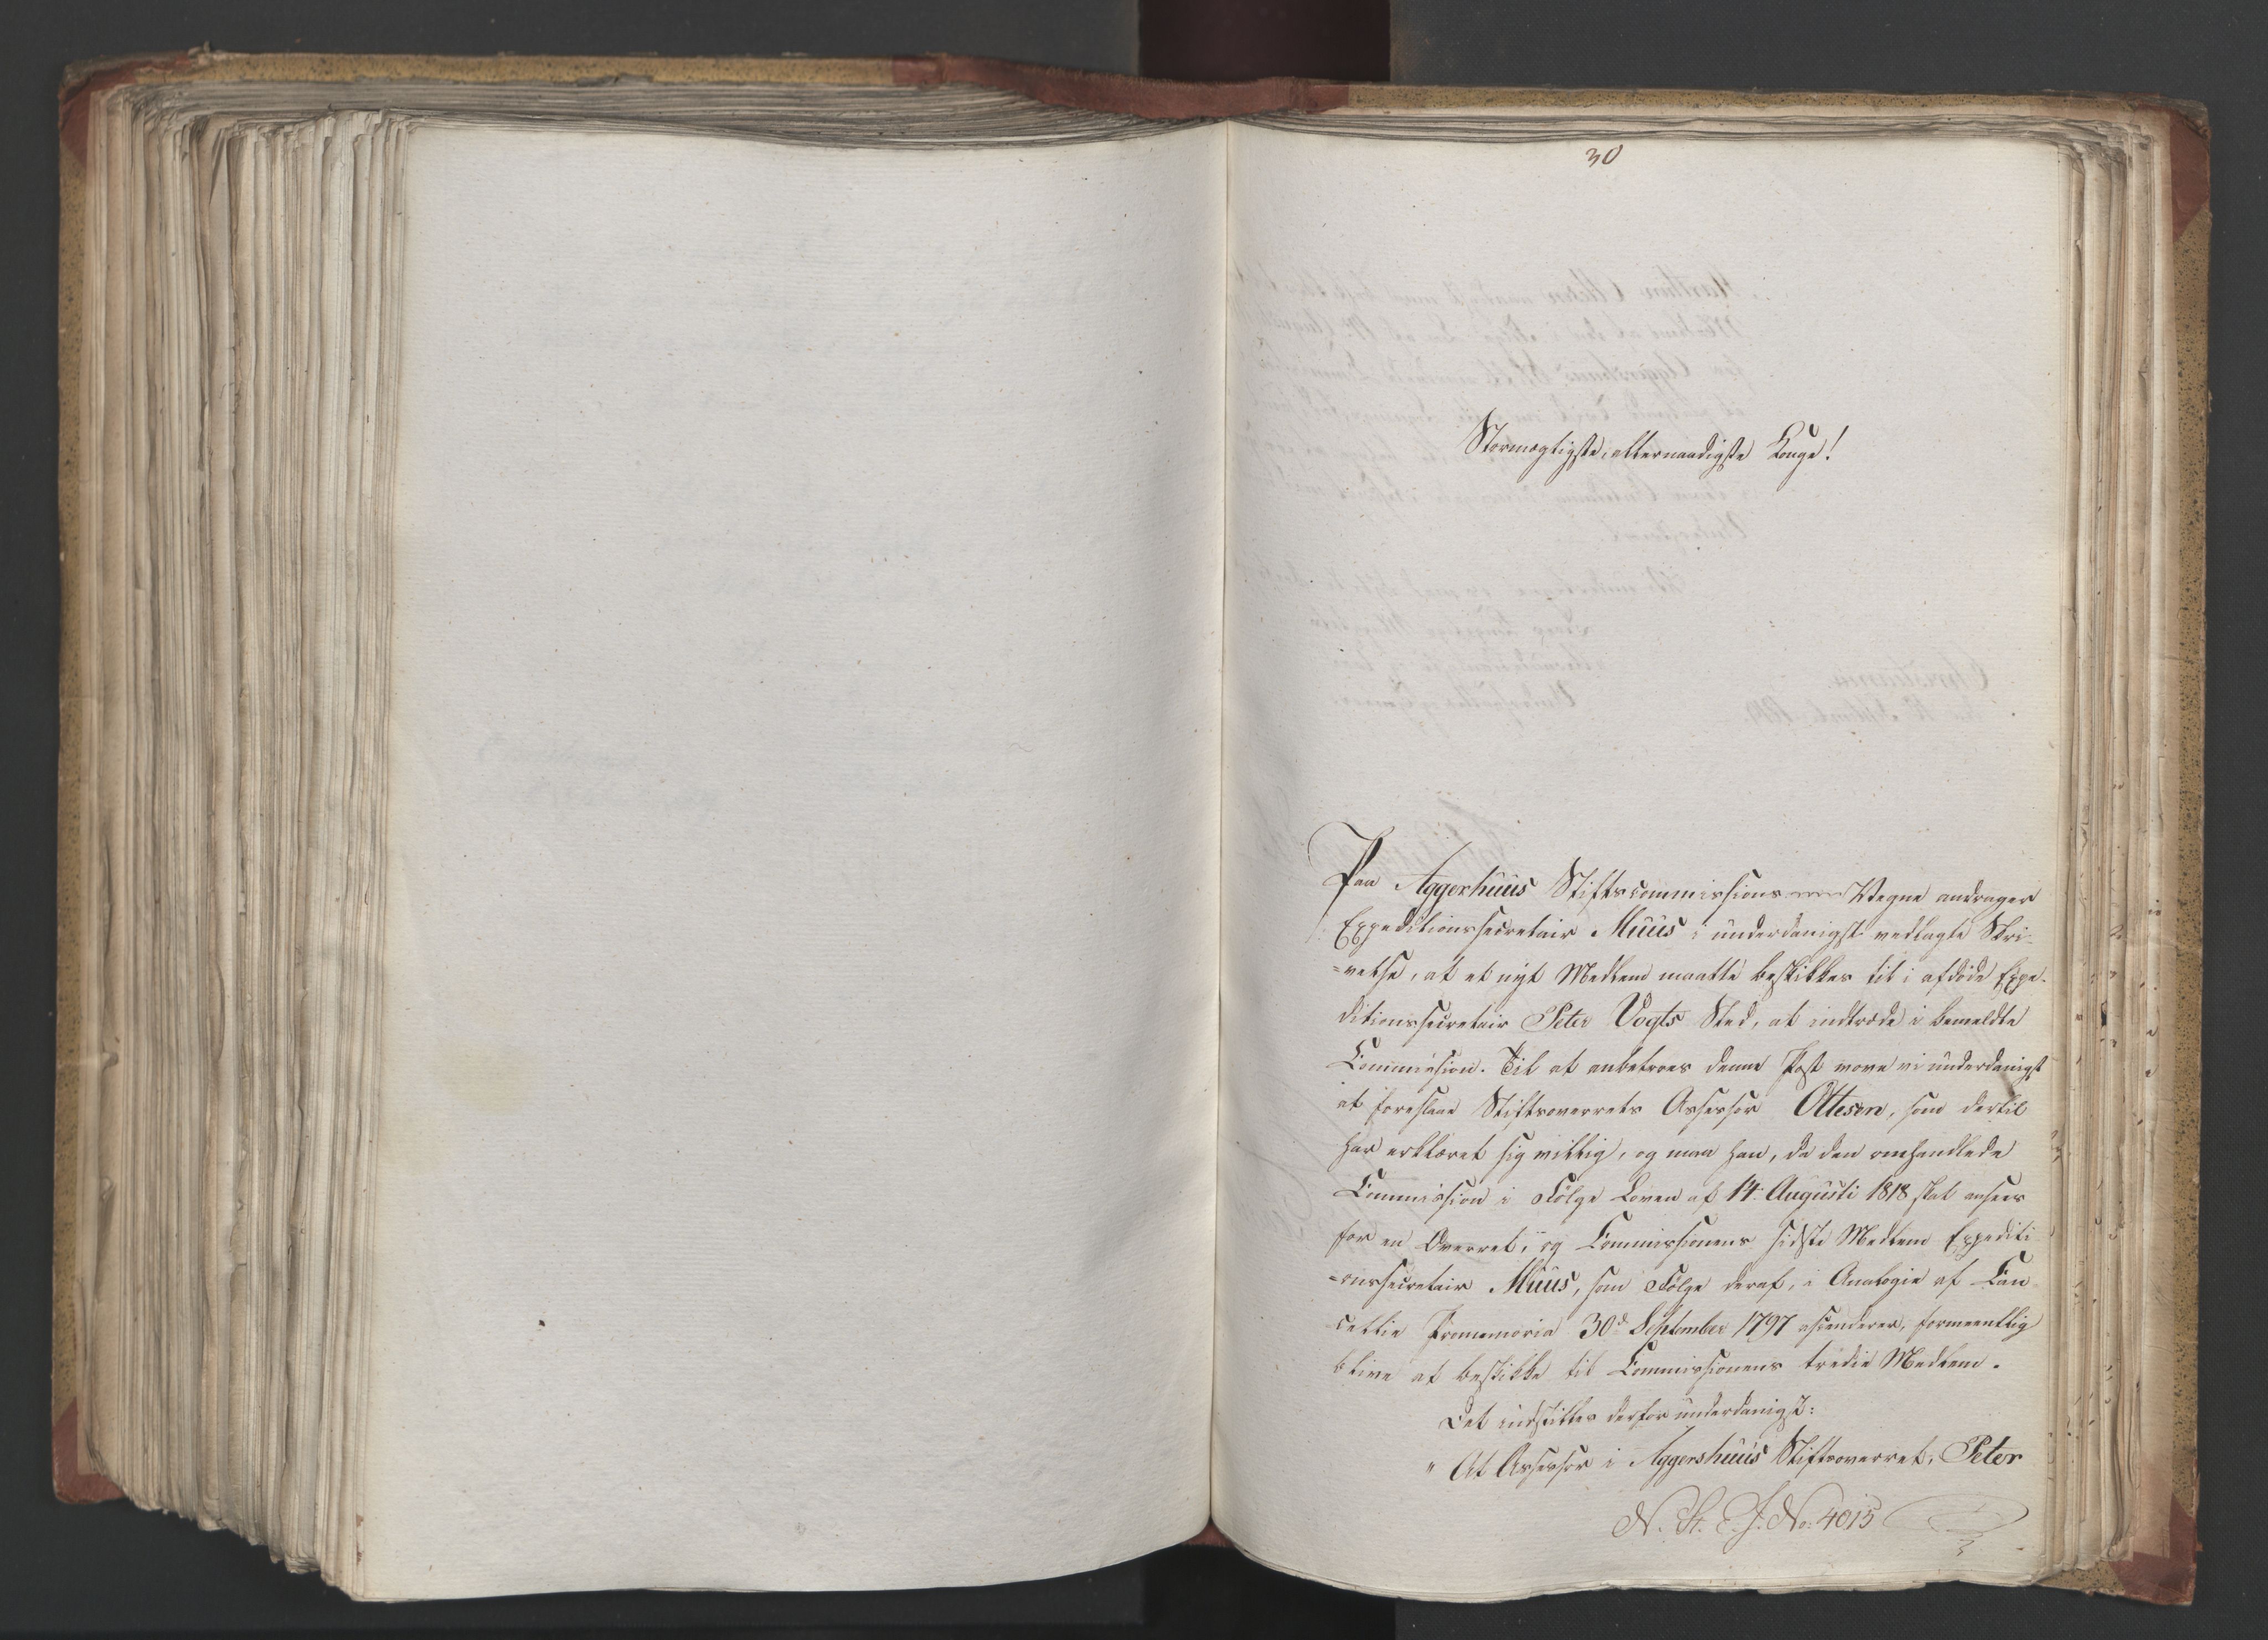 30
Stormægtigste, allernaadigste Konge!
Paa Aggerhuus Stiftscommissions Vegne andrager
Expeditionssecretair Muus i underdanigst vedlagte Skri-
=velse, at et nyt Medlem maatte beskikkes til i afdøde Expe-
ditionssecretair Peter Vogts Sted, at indtræde i bemeldte
Commission. Til at anbetroes denne Post vove vi underdanigst
at foreslaae Stiftsoverrets Assessor Ottesen, som dertil
har erklæret sig villig, og maa han, da den omhandlede
Commission i Følge Loven af 14. Augusti 1818 skal ansees
for en Overret, og Commissionens sidste Medlem Expediti
=onssecretair Muus, som Følge deraf, i Analogie af Can
cellie Promemoria 30d September 1797 ascenderer, formeentlig
blive at beskikke til Commissionens tredie Medlem.
Det indstilles derfor underdanigst:
" At Assessor i Aggershuus Stiftsoverret, Peter
N. St. E. J. No: 4015